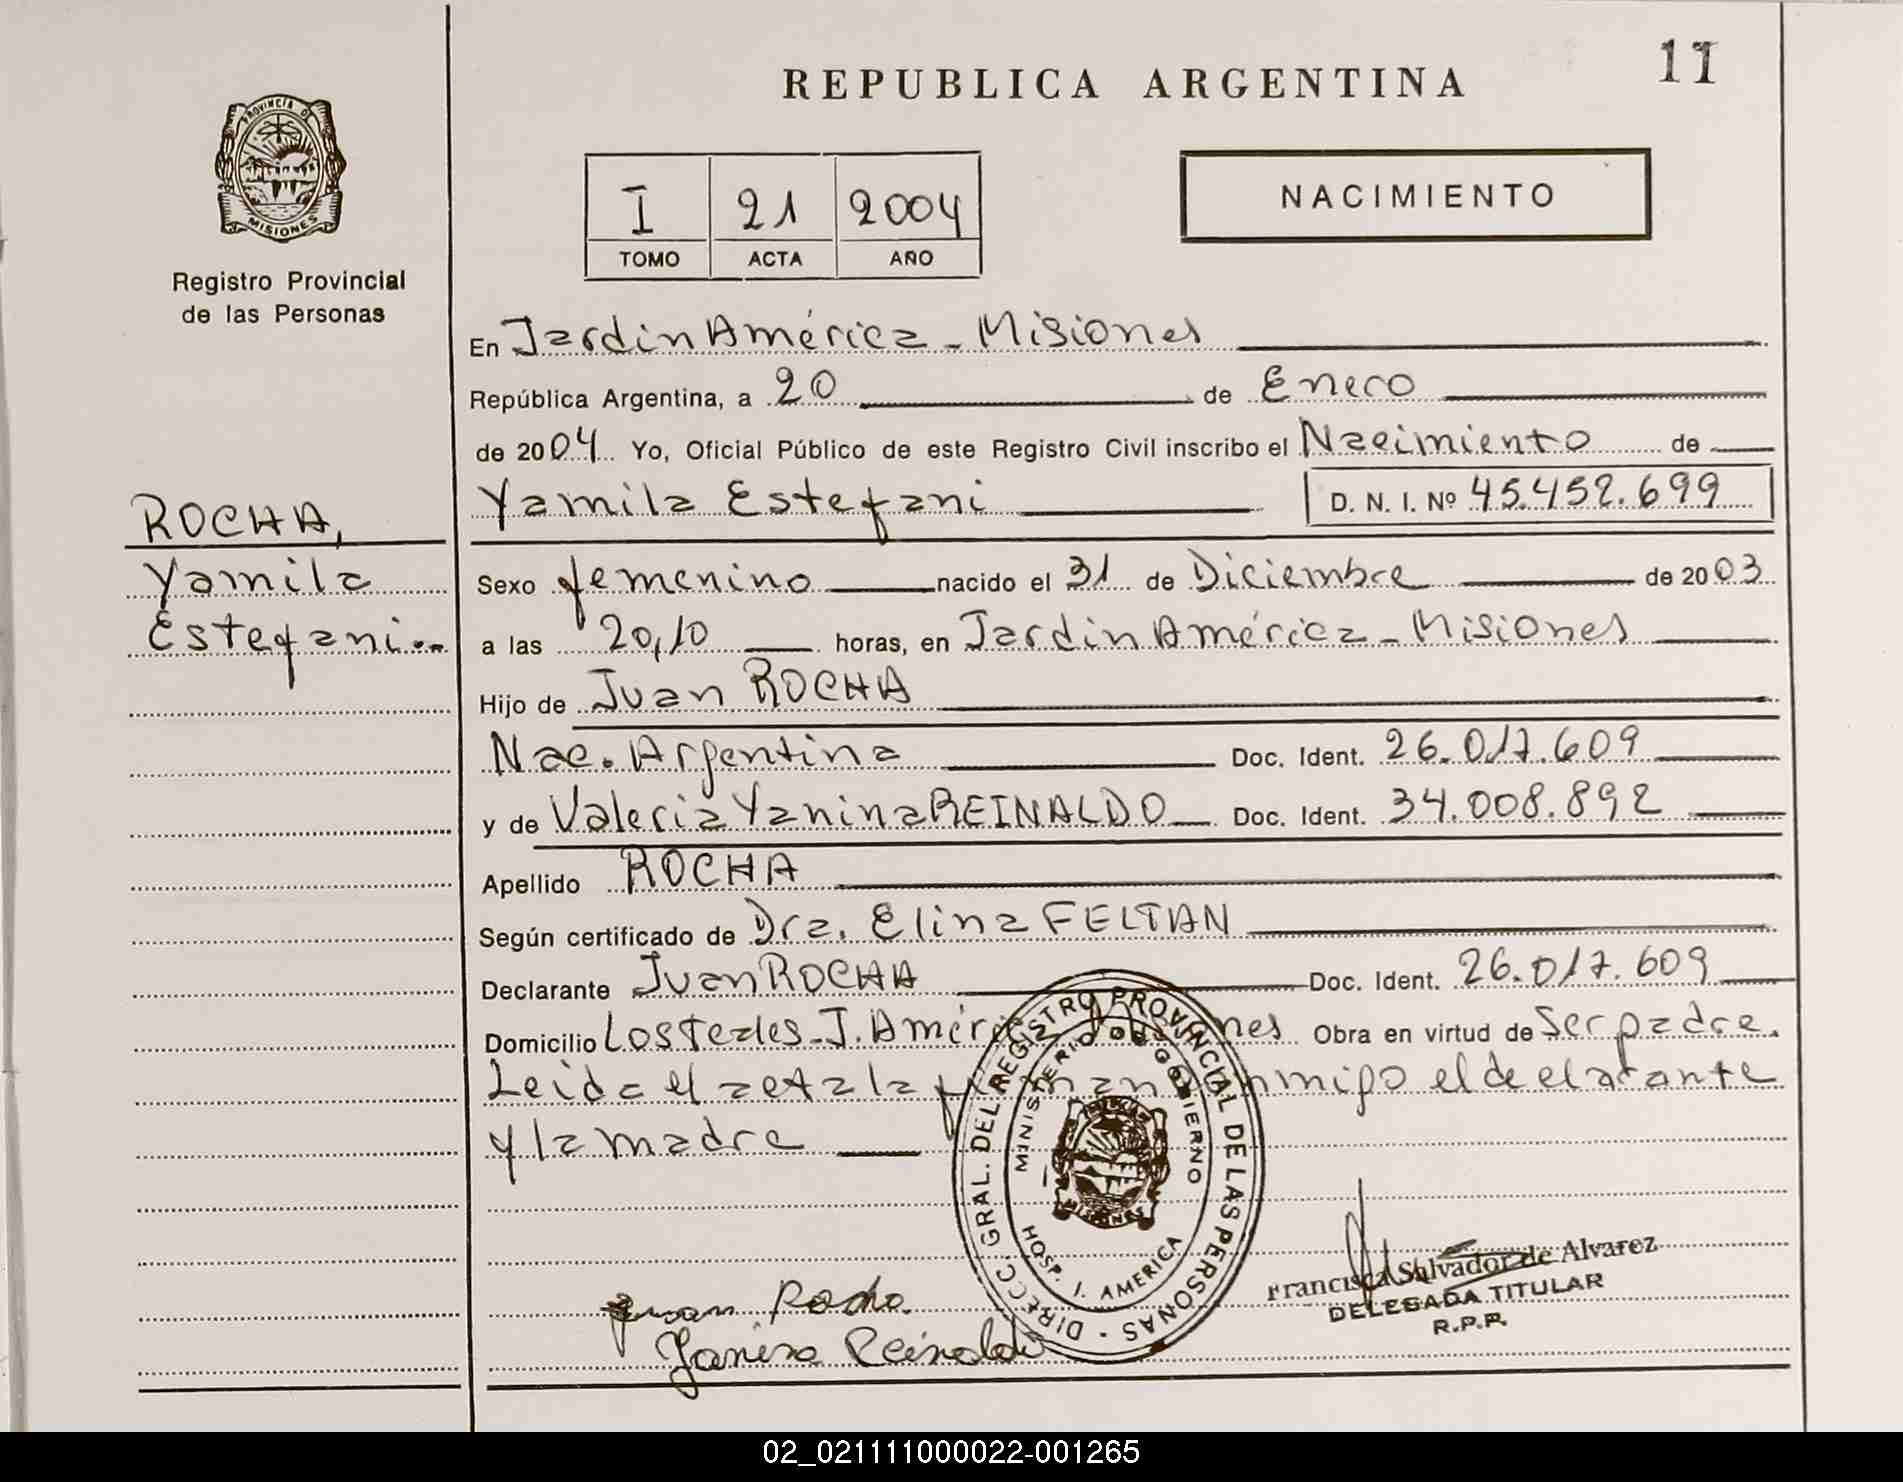 11
REPUBLICA ARGENTINA
PROVINCIA DE
MISIONES
Registro Provincial
de las Personas
I 21 2004
TOMO ACTA AÑO
NACIMIENTO
En Jardin América - Misiones
República Argentina, a 20 de Enero
de 2004 Yo, Oficial Público de este Registro Civil inscribo el Nacimiento de
Yamila Estefani D. N. I. Nº 45.452.699
ROCHA,
Yamila
Estefani..
Sexo femenino nacido el 31 de Diciembre de 2003
a las 20,10 horas, en Jardin América - Misiones
Hijo de Juan ROCHA
Nac. Argentina Doc. Ident. 26.017.609
y de Valeria Yanina REINALDO Doc. Ident. 34.008.892
Apellido ROCHA
Según certificado de Dra. Elina FELTAN
Declarante Juan ROCHA Doc. Ident. 26.017.609
Domicilio Los Teales - J. América - Misiones Obra en virtud de Ser padre.
Leida el acta la firman conmigo el declarante
y la madre
DIRECC. GRAL. DEL REGISTRO PROVINCIAL DE LAS PERSONAS
MINISTERIO DE GOBIERNO
MISIONES
HOSP. J. AMERICA
Juan Rocha
Yanina Reinaldo
Francisca Salvador de Alvarez
DELEGADA TITULAR
R.P.P.
02_021111000022-001265